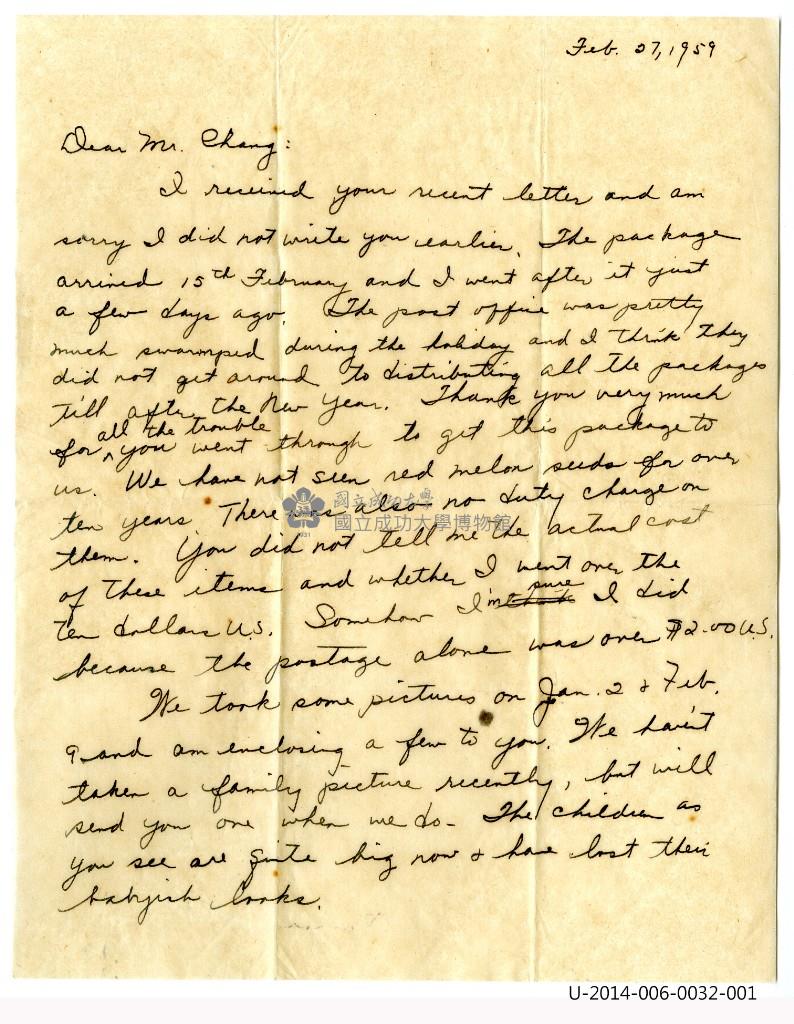 Feb. 27, 1959
Dear Mr. Chang:
I received your recent letter and am
sorry I did not write you earlier. The package
arrived 15th February and I went after it just
a few days ago. The post office was pretty
much swarmped during the holiday and I think they
did not get around to distributing all the packages
till after the New Year. Thank you very much
for all the trouble you went through to get this package to
us. We have not seen red melon seeds for over
ten years. There was also no duty charge on
them. You did not tell me the actual cost
of these items and whether I went over the
ten dollars U.S. Somehow I'm sure I did
because the postage alone was over $2.00 U.S.
We took some pictures on Jan. 2 & Feb.
9 and am enclosing a few to you. We haven't
taken a family picture recently, but will
send you one when we do. The children as
you see are quite big now & have lost their
babyish looks.
國立成功大學
國立成功大學博物館
1931
U-2014-006-0032-001